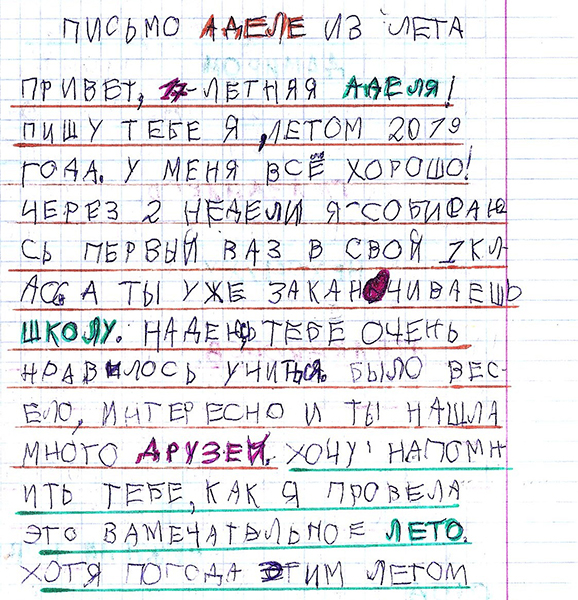 ПИСЬМО АДЕЛЕ ИЗ ЛЕТА
ПРИВЕТ, 17-ЛЕТНЯЯ АДЕЛЯ!
ПИШУ ТЕБЕ Я ,ЛЕТОМ 2019
ГОДА. У МЕНЯ ВСЁ ХОРОШО!
ЧЕРЕЗ 2 НЕДЕЛИ Я СОБИРАЮ
СЬ ПЕРВЫЙ ВАЗ В СВОЙ 1 КЛ-
АСС А ТЫ УЖЕ ЗАКАН ЧИВАЕШЬ
ШКОЛУ. НАДЕЮ ТЕБЕ ОЧЕНЬ
НРАВИЛОСЬ УЧИТЬСЯ. БЫЛО ВЕС-
ЕЛО, ИНТЕРЕСНО И ТЫ НАШЛА
МНОГО ДРУЗЕЙ. ХОЧУ НАПОМН
ИТЬ ТЕБЕ, КАК Я ПРОВЕЛА
ЭТО ВАМЕЧАТЕЛЬНОЕ ЛЕТО.
ХОТЯ ПОГОДА ЭТИМ ЛЕТОМ